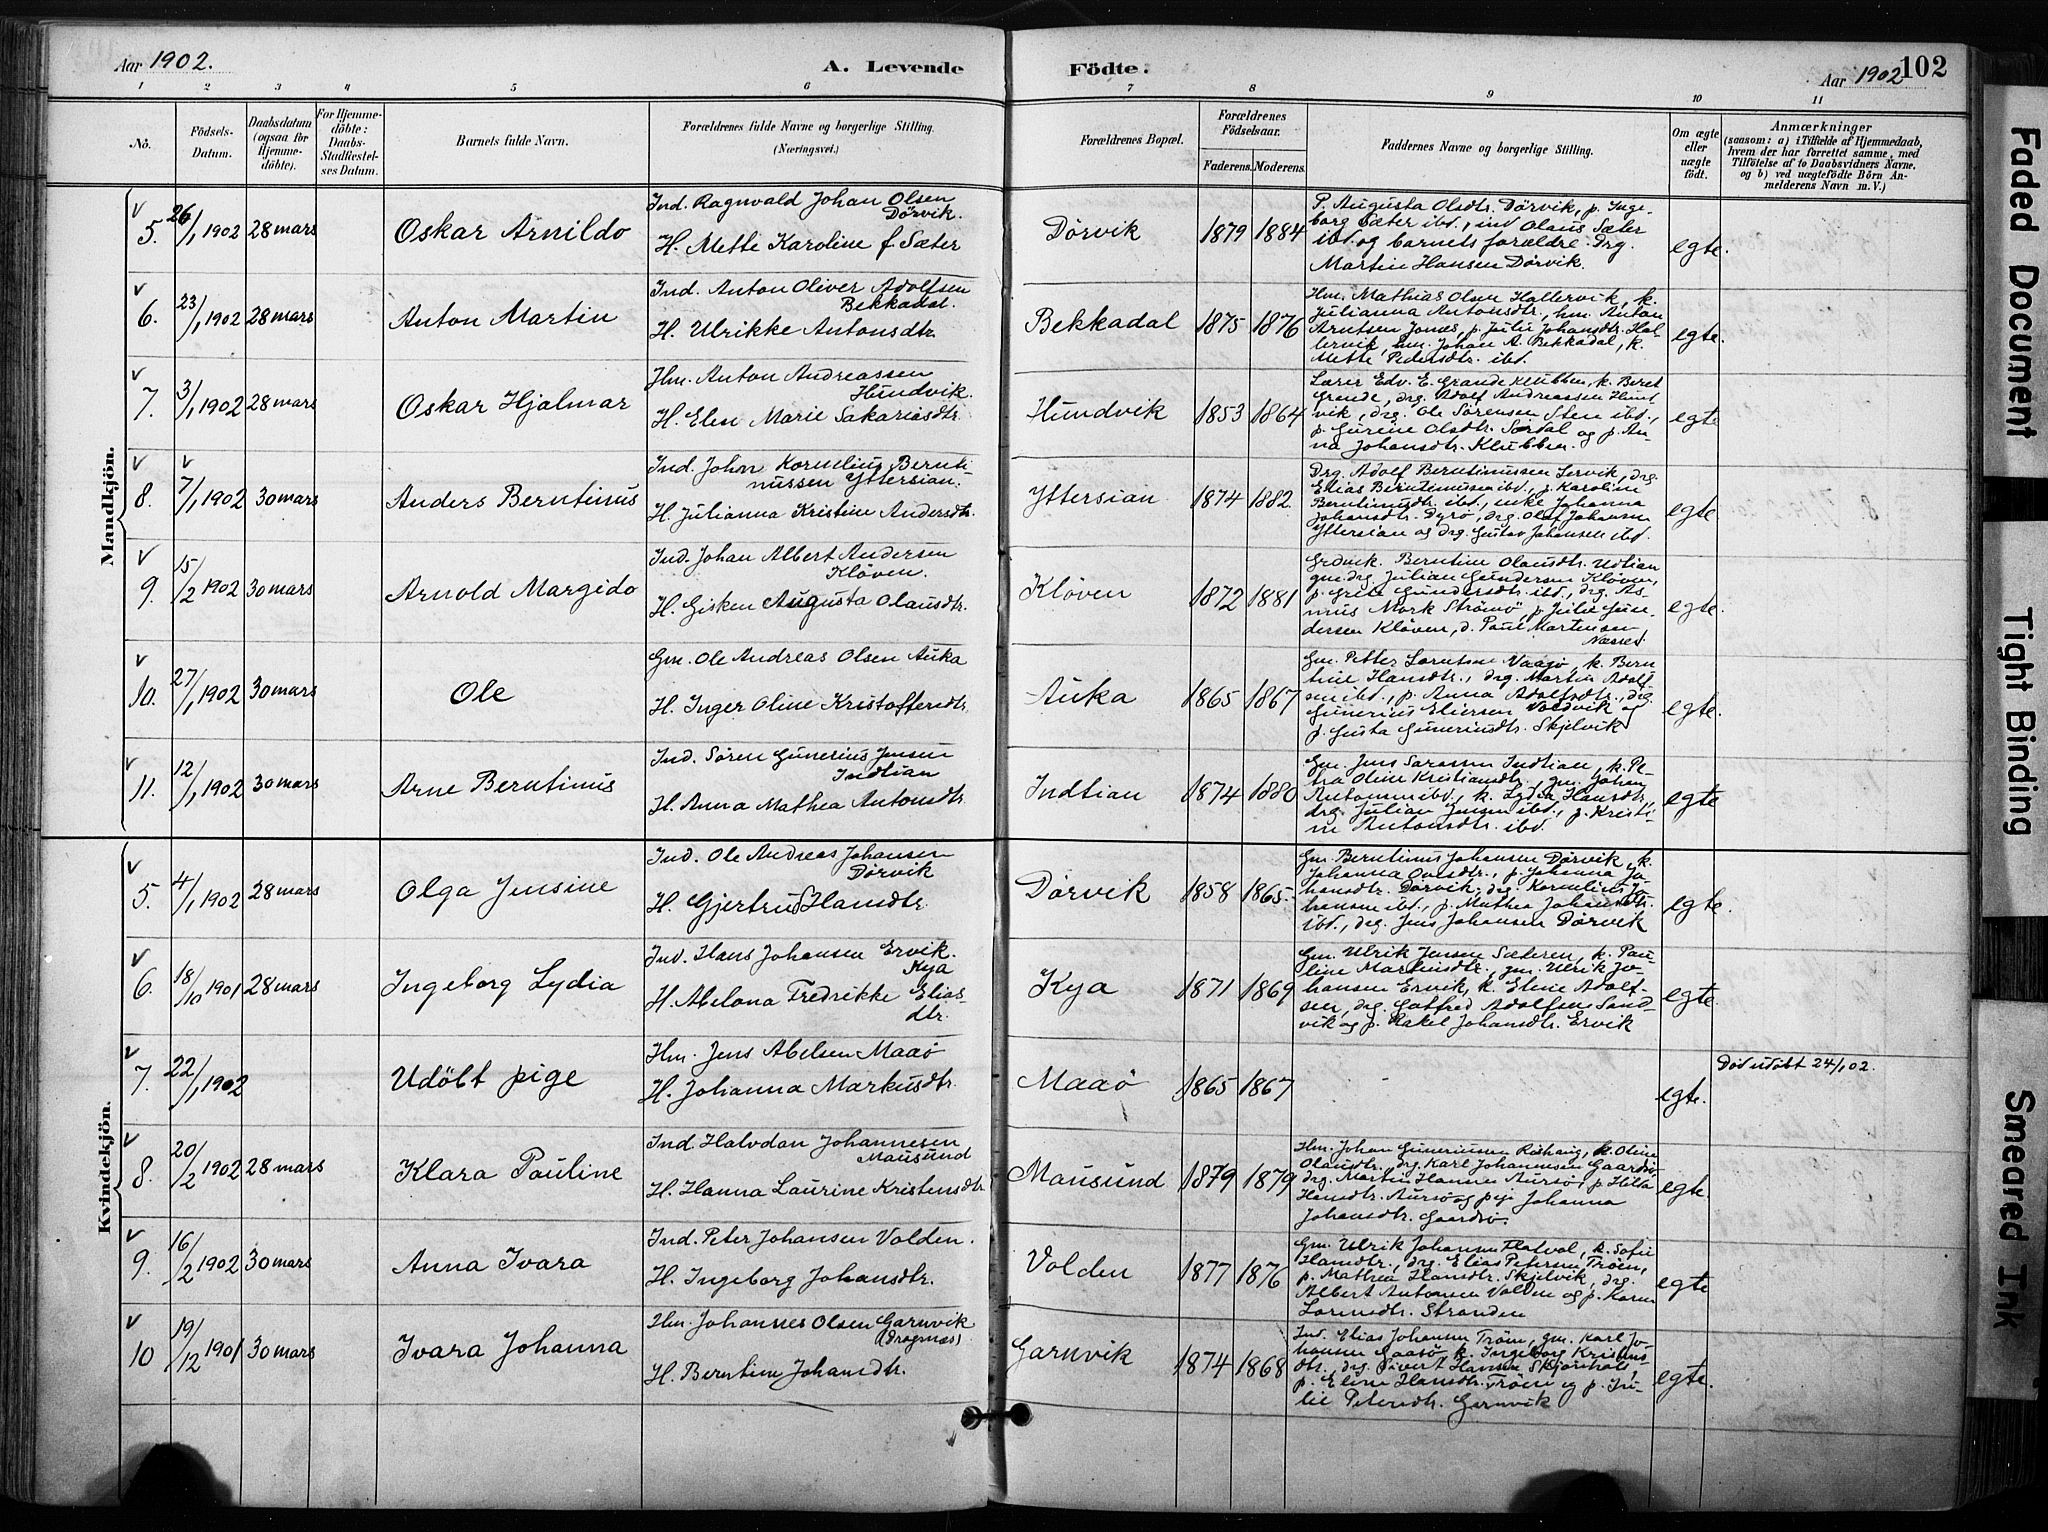 Aar 1902.
A. Levende
Födte.
Aar 1902
102
1 2 3 4 5 6 7 8 9 10 11
No.
Födsels-Datum.
Daabsdatum (ogsaa for Hjemme-döbte).
For Hjemme-döbte: Daabs-Stadfæstel-ses Datum.
Barnets fulde Navn.
Forældrenes fulde Navne og borgerlige Stilling.
(Næringsvei.)
Forældrenes Bopæl.
Forældrenes Födselsaar.
Faderens. Moderens.
Faddernes Navne og borgerlige Stilling.
Om ægte eller uægte født.
Anmærkninger
(saasom: a) i Tilfælde af Hjemmedaab,
hvem der har forrettet samme, med
Tilföielse af to Daabsvidners Navne,
og b) ved uægtefödte Börn An-
melderens Navn m. V.)
Mandkjön.
5. 26/1 1902 28 mars
Oskar Arnildo
Ind. Ragnvald Johan Olsen
Dørvik.
H. Mette Karoline f Sæter
Dørvik 1879 1884
P. Augusta Olsdtr. Dørvik, p. Inge-
borg Sæter ibd., ind Olaus Sæter
ibd. og barnets forældre. Drg.
Martin Hansen Dørvik.
egte.
6. 23/1 1902 28 mars
Anton Martin
Ind. Anton Oliver Adolfsen
Bekkadal.
H. Ulrikke Antonsdtr.
Bekkadal 1875 1876
Hm. Mathias Olsen Hallervik, k.
Julianna Antonsdtr., hm. Anton
Arntsen Jonæs, p. Julie Johansdtr. Hal-
lervik, hm. Johan A. Bekkadal, k.
Mette Pedersdtr. ibd.
egte.
7. 3/1 1902 28 mars
Oskar Hjalmar
Hm. Anton Andreassen
Hundvik.
H. Elen Marie Sakariasdtr.
Hundvik 1853 1864
Lærer Edv. E. Grande Klubben, k. Beret
Grande, drg. Adolf Andreassen Hund-
vik, drg. Ole Sørensen Sten ibd.,
p. Gurine Olsdtr. Sørdal og p. An-
na Johansdtr. Klubben.
egte
8. 7/1 1902 30 mars
Anders Berntinus
Ind. Johan Kornelius Bernti-
nussen Yttersian.
H. Julianna Kristine Andersdtr.
Yttersian 1874 1882.
Drg. Adolf Berntinussen Lervik, drg.
Elias Berntinussen ibd., p. Karoline
Berntinusdtr. ibd., enke Johanna
Johansdtr. Dyrø, drg. Olaf Johansen
Yttersian og drg. Gustav Johansen ibd.
egte.
9. 15/2 1902 30 mars
Arnold Margido
Ind. Johan Albert Andersen
Kløven.
H. Gisken Augusta Olausdtr.
Kløven 1872 1881
Berntine Olausdtr. Udtian
drg. Julian Gundersen Kløven,
p. Grete Gundersdtr. ibd., drg. As-
mus Mork Strømø, p. Julie Gun-
dersen Kløven, d. Paul Martensen
Næsset
egte.
10. 27/1 1902 30 mars
Ole
Gm. Ole Andreas Olsen Auka
H. Inger Oline Kristoffersdtr.
Auka 1865 1867
Gm. Petter Lorntsen Vaagø, k. Bern-
tine Hansdtr., drg. Martin Adolf-
sen ibd., p. Anna Adolfsdtr., drg.
Gunerius Eliersen Valdvik og
p. Gusta Guneriusdtr. Skjelvik
egte.
11. 12/1 1902 30 mars
Arne Berntinus
Ind. Søren Gunerius Jensen
Indtian
H. Anna Mathea Antonsdtr.
Indtian 1874 1880
Gm. Jens Sørensen Indtian, k. Pe-
tra Oline Kristiansdtr., gm. Johan
Antonsen ibd., k. Lydia Hansdtr.,
drg. Julian Jensen ibd., p. Kristi-
ne Antonsdtr. ibd.
egte
Kvindekjön.
5. 4/1 1902 28 mars
Olga Jensine
Ind. Ole Andreas Johansen
Dørvik
H. Gjertrud Hansdtr.
Dørvik 1858 1865.
Gm. Berntinus Johansen Dørvik, k.
Johanna Olsdtr., p. Johanna Jo-
hansdtr. Dørvik, drg. Kornelius Jo-
hansen ibd., p. Mathea Johansdtr.
ibd., drg. Jens Johansen Dørvik
egte.
6. 18/10 1901 28 mars
Ingeborg Lydia
Ind. Hans Johansen Ervik.
Kya
H. Abelona Fredrikke Elias-
dtr.
Kya 1871 1869
Gm. Ulrik Jensen Sæteren, k. Pau-
line Martinsdtr., gm. Ulrik Jo-
hansen Ervik, k. Eline Adolf-
sen, drg. Gotfred Adolfsen Sand-
vik og p. Rakel Johansdtr. Ervik
egte.
7. 22/1 1902
Udöbt pige
Hm. Jens Abelsen Maaø
H. Johanna Markusdtr.
Maaö 1865 1867
egte.
Död udöbt 24/1 02.
8. 20/2 1902 28 mars
Klara Pauline
Ind. Halvdan Johannesen
Mausund
H. Hanna Laurine Kristensdtr.
Mausund 1879 1879
Hm. Johan Guneriusen Røshaug, k. Oline
Olausdtr., drg. Karl Johannesen Gaardsø,
drg. Martin Hansen Aursø, p. Hilda
Hansdtr. Aursø og pige Johanna
Johansdtr. Gaardsø.
egte.
9. 16/2 1902 30 mars
Anna Ivara
Ind. Peter Johansen Volden.
H. Ingeborg Johansdtr.
Volden 1877 1876
Gm. Ulrik Johansen Flatval, k. Sofie
Hansdtr., drg. Elias Petersen Trøen,
p. Mathea Hansdtr. Skjelvik, drg.
Albert Antonsen Volden og p. Karen
Lorensdtr. Stranden
egte
10 19/12 1901 30 mars
Ivara Johanna
Hm. Johannes Olsen Garnvik
(Dragnæs)
H. Berntine Johansdtr.
Garnvik 1874 1868
Ind. Elias Johansen Trøen, gm. Karl Jo-
hansen Gaasø, k. Ingeborg Kristens-
dtr., drg. Sivert Hansen Skjærihals,
p. Eline Hansdtr. Trøen og p. Ju-
lie Petersdtr. Garnvik
egte.
Faded Document
Tight Binding
Smeared Ink